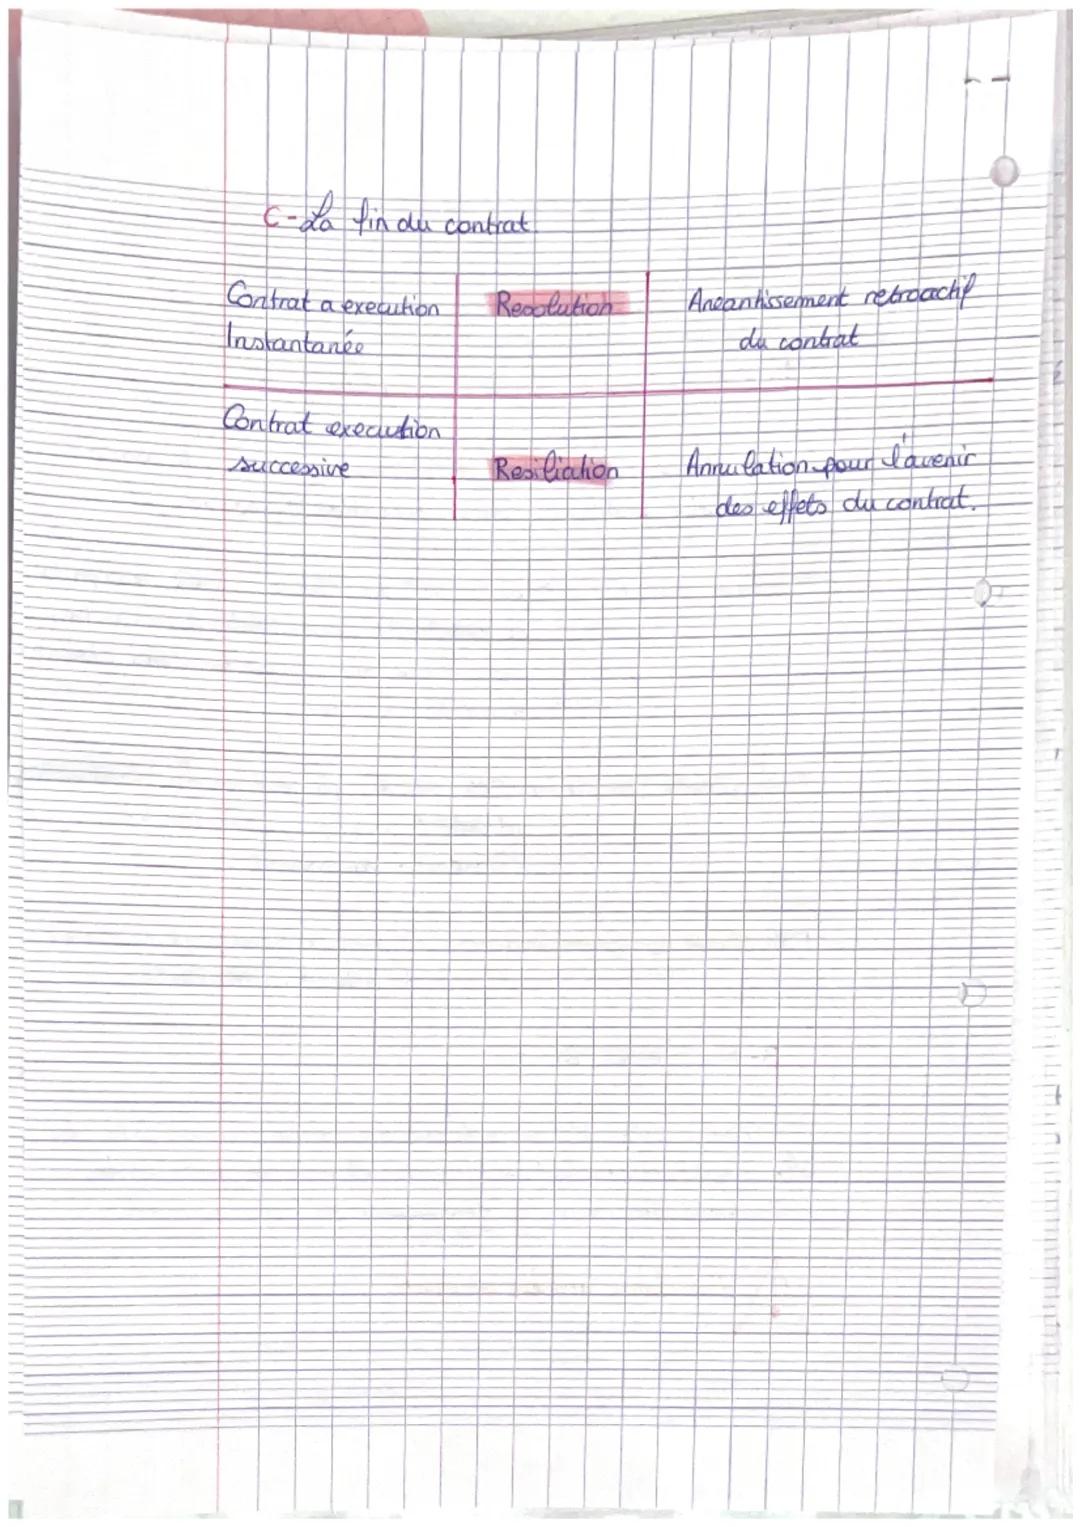 C - La fin du contrat
Contrat a execution
Instantanée
Resolution
Aneantissement retroactif
du contrat
Contrat execution
successive
Resiliation
Annulation pour l'avenir
des effets du contrat.